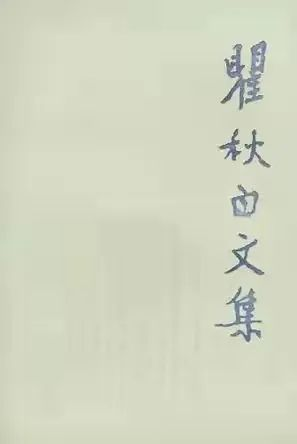 瞿秋白文集